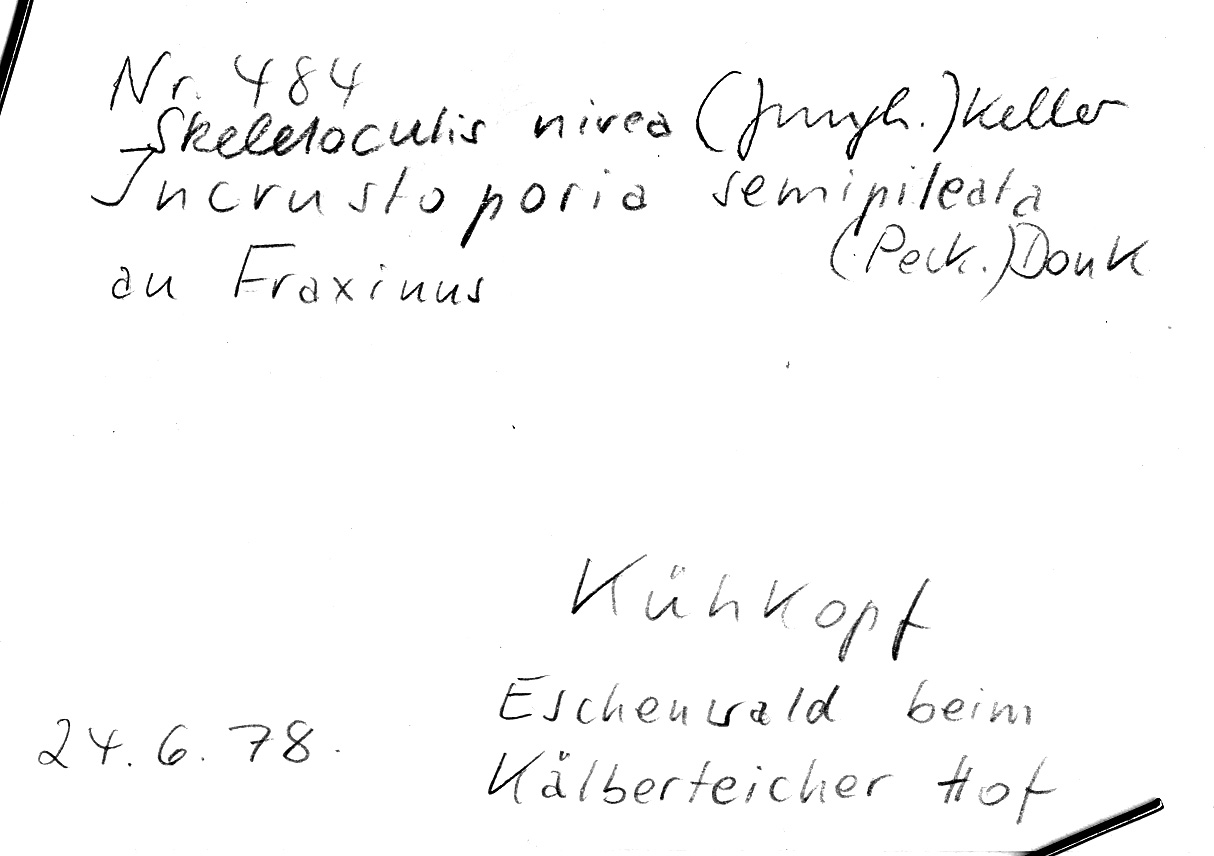 Nr. 484
Skeletoculis nivea (Jungh.) Keller
Incrustoporia semipileata
(Peck.) Donk
an Fraxinus
Kühkopf
Eschenwald beim
Kälberteicher Hof
24.6.78.